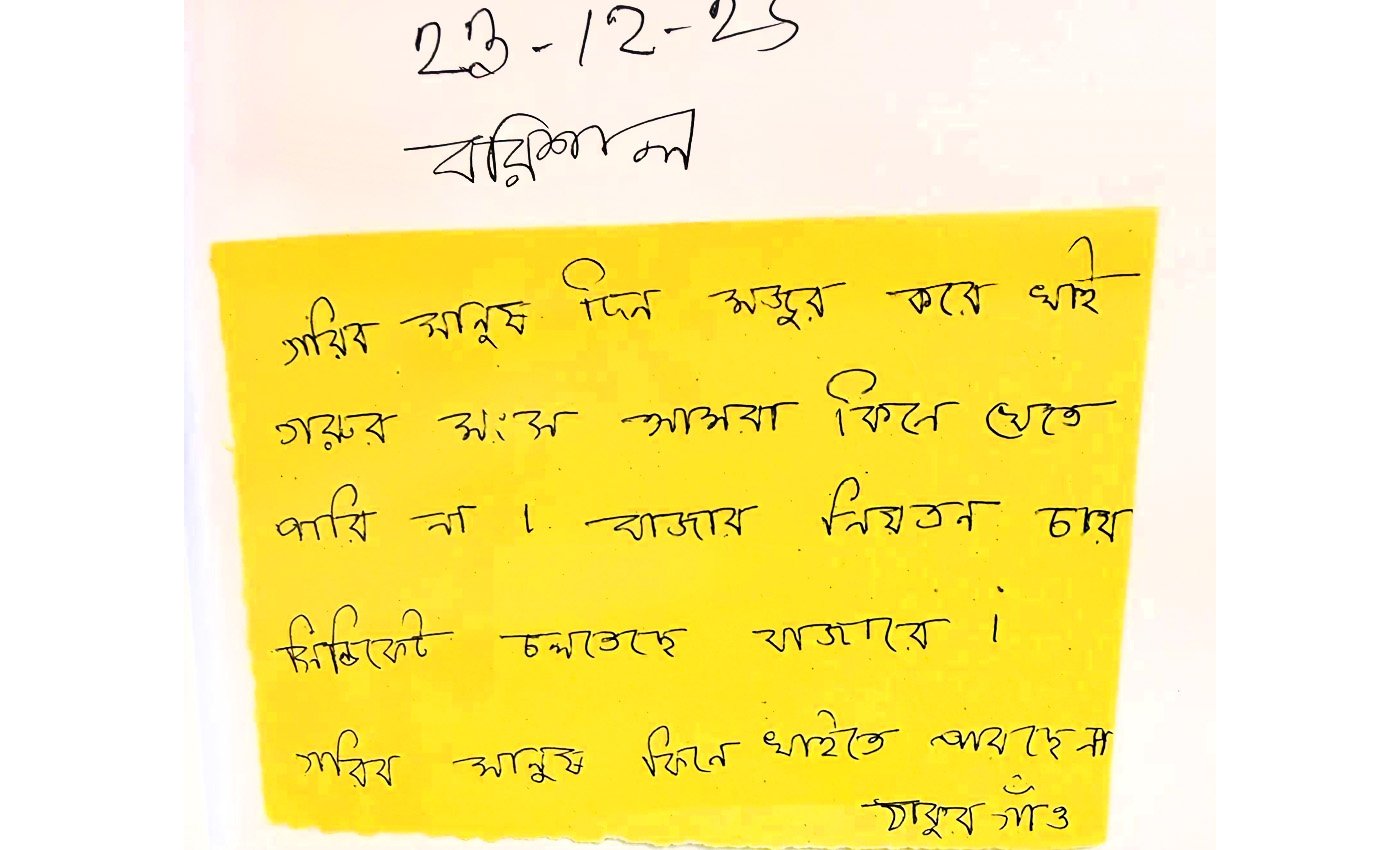 23-12-25
বরিশাল
গরিব মানুষ দিন মজুর করে খাই
গরুর মংস আমরা কিনে খেতে
পারি না । বাজার নিয়তন চায়
সিন্ডিকেট চলতেছে বাজারে ।
গরিব মানুষ কিনে খাইতে পারছে না
ঠাকুর গাঁও